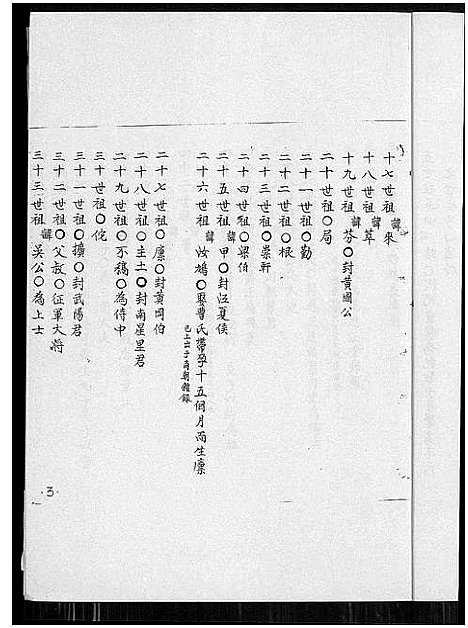 十七世祖諱來
十八世祖諱草
十九世祖諱芬○封黃國公
二十世祖○局
二十一世祖○勤
二十二世祖○根
二十三世祖○崇軒
二十四世祖○梁伯
二十五世祖諱甲○封江夏侯
二十六世祖諱汝鳩○娶曹氏帶孕十五個月而生廪
已上出于商朝
二十七世祖○廪○封黃岡伯
二十八世祖○主土○封南星里君
二十九世祖○不稿○為侍中
三十世祖○侘
三十一世祖○擴○封武陽君
三十二世祖○父叔○征軍大將
三十三世祖諱吳公○為上士
·3·